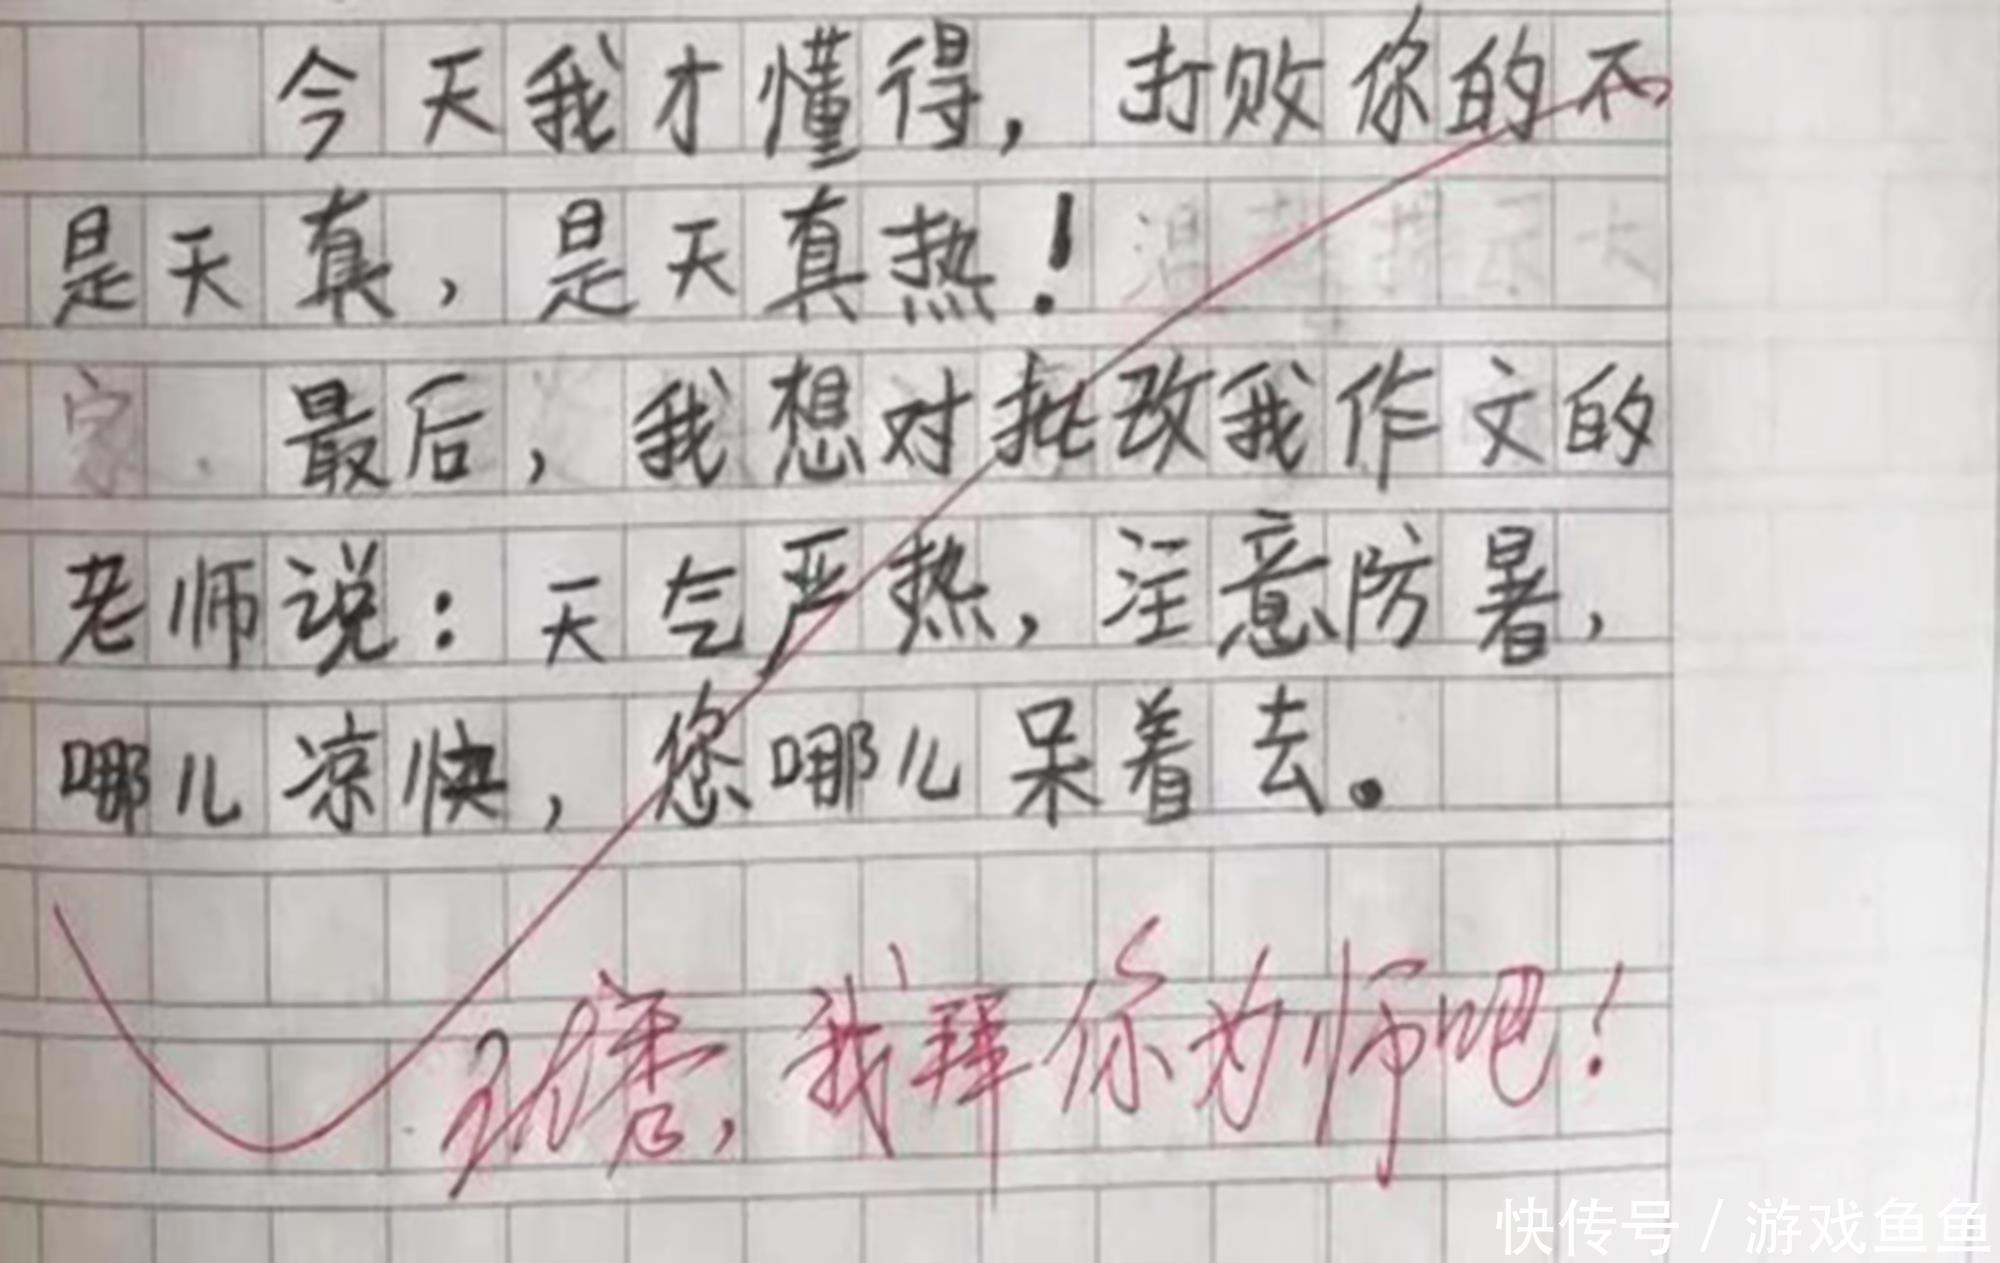 今天我才懂得，打败你的不
是天真，是天真热！
最后，我想对批改我作文的
老师说：天气严热，注意防暑，
哪儿凉快，您哪儿呆着去。
我拜你为师吧！
快传号 / 游戏鱼鱼